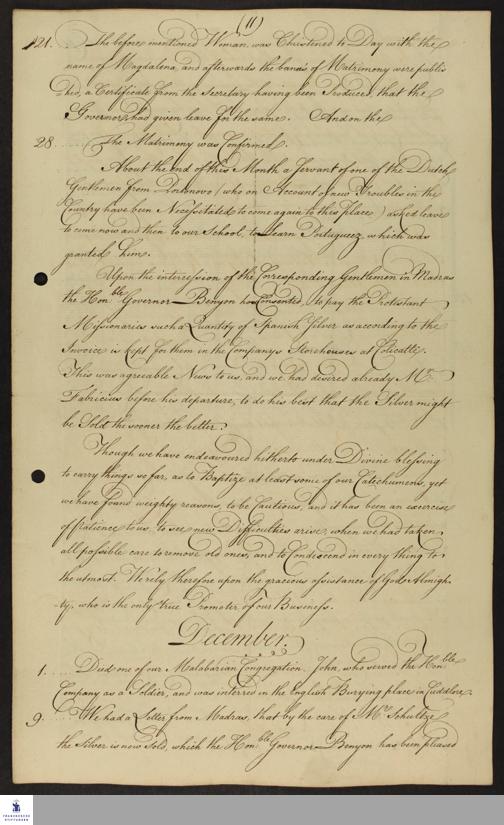 (11)
21. The before mentioned Woman, was Christened to Day with the
name of Magdalena, and afterwards the banns of Matrimony were publis
=hed, a Certificate from the Secretary having been Produced, that the
Governor had given leave for the same. And on the
28. The Matrimony was Confirmed.
About the end of this Month a Servant of one of the Dutch
Gentlemen from (who on Account of new Troubles in the
Country have been Necessitated to come again to this place) asked leave
to come now and then to our School, to Learn Portugueez, which was
granted him.
Upon the intercession of the Corresponding Gentlemen in Madras
the Hon:ble Governor Benyon has Consented, to pay the Protistant
Missionaries such a Quantity of Spanish Silver as according to the
Invoice is kept for them in the Companys Storehouses at
This was agreable News to us, and we had desired already Mr.
Fabricius before his departure, to do his best that the Silver might
be Sold the sooner the better.
Though we have endeavoured hitherto under Divine blessing
to carry things so far, as to Baptize at least some of our Catechumens, yet
we have found weighty reasons, to be Cautious, and it has been an exercise
of Patience to us, to see new Difficulties arise, when we had taken
all possible care to remove old ones, and to Condiscend in every thing to
the utmost. We rely therefore upon the gracious assistance of God Almigh=
=ty, who is the only true Promoter of our Business.
December.
1. Died one of our Malabarian Congregation, John, who served the Hon:ble
Company as a Soldier, and was interred in the English Burying place in Cudelore.
9. We had a Letter from Madras, that by the care of Mr. Schultze
the Silver is now Sold, which the Hon:ble Governor Benyon has been pleased
FRANCKESCHE
STIFTUNGEN